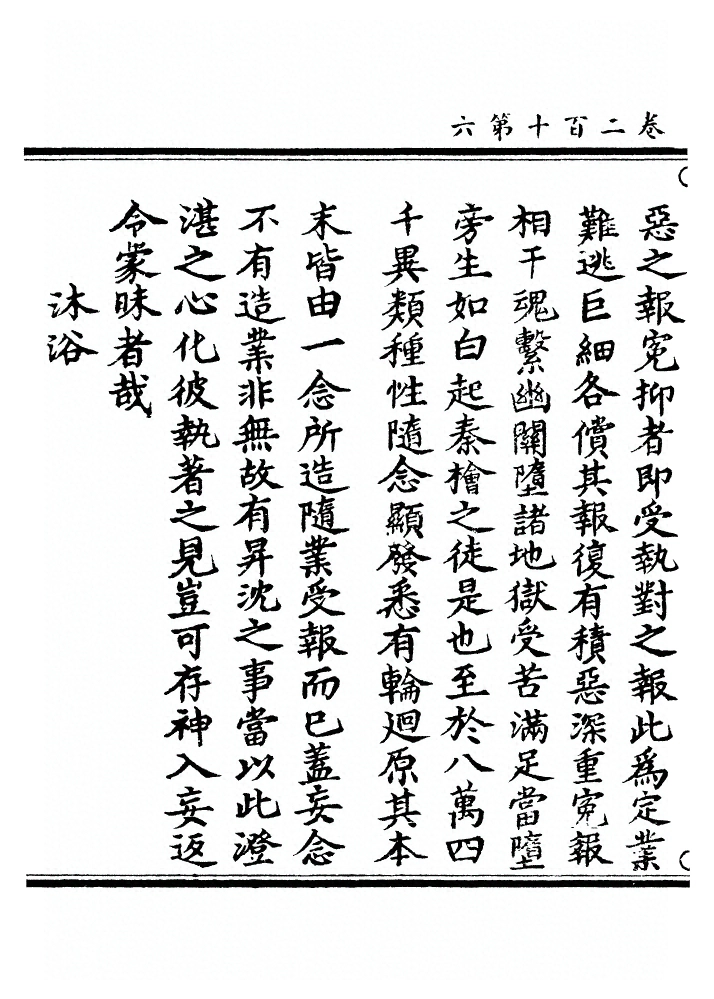 卷二百十第六
惡之報寃抑者即受執對之報此爲定業
難逃巨細各償其報復有積惡深重寃報
相干魂繫幽關墮諸地獄受苦滿足當墮
旁生如白起秦檜之徒是也至於八萬四
千異類種性隨念顯發悉有輪迴原其本
末皆由一念所造隨業受報而已蓋妄念
不有造業非無故有昇沈之事當以此澄
湛之心化彼執著之見豈可存神入妄返
令蒙昧者哉
沐浴